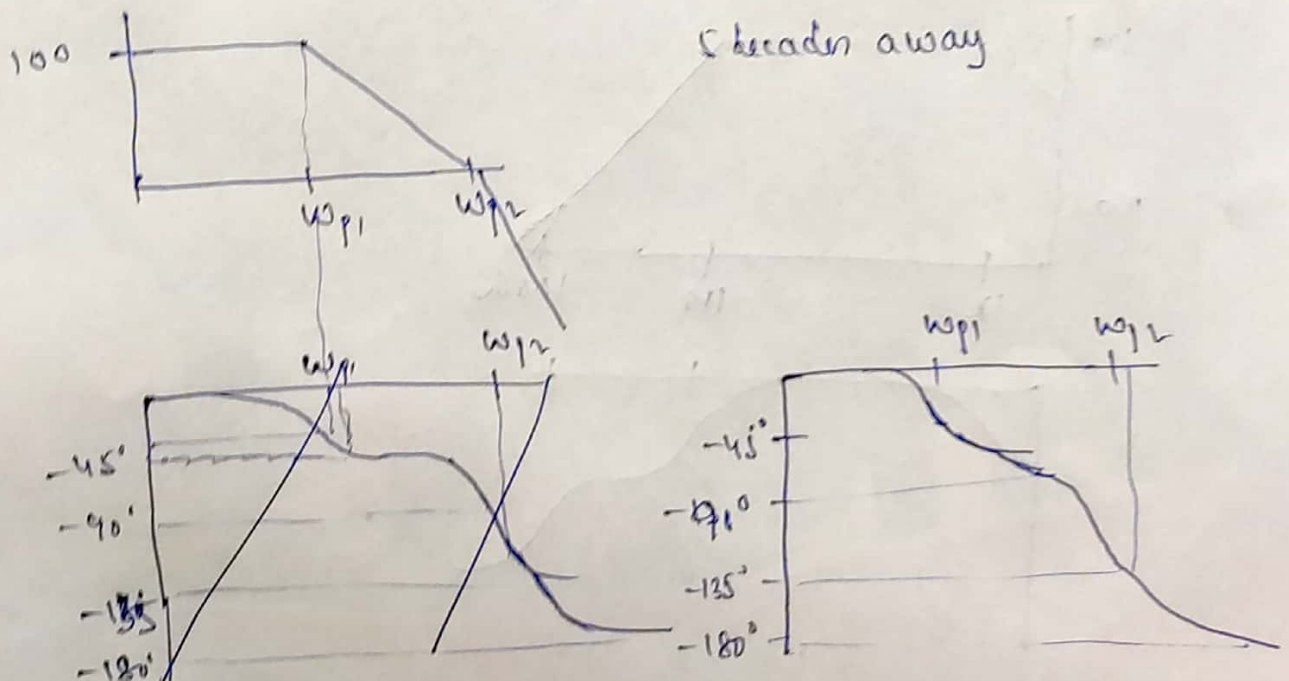 100
5 decades away
ωp1
ωp2
ωp1
ωp2
-45°
-90°
-135
-180°
ωp1
ωp2
-45°
-90°
-135°
-180°